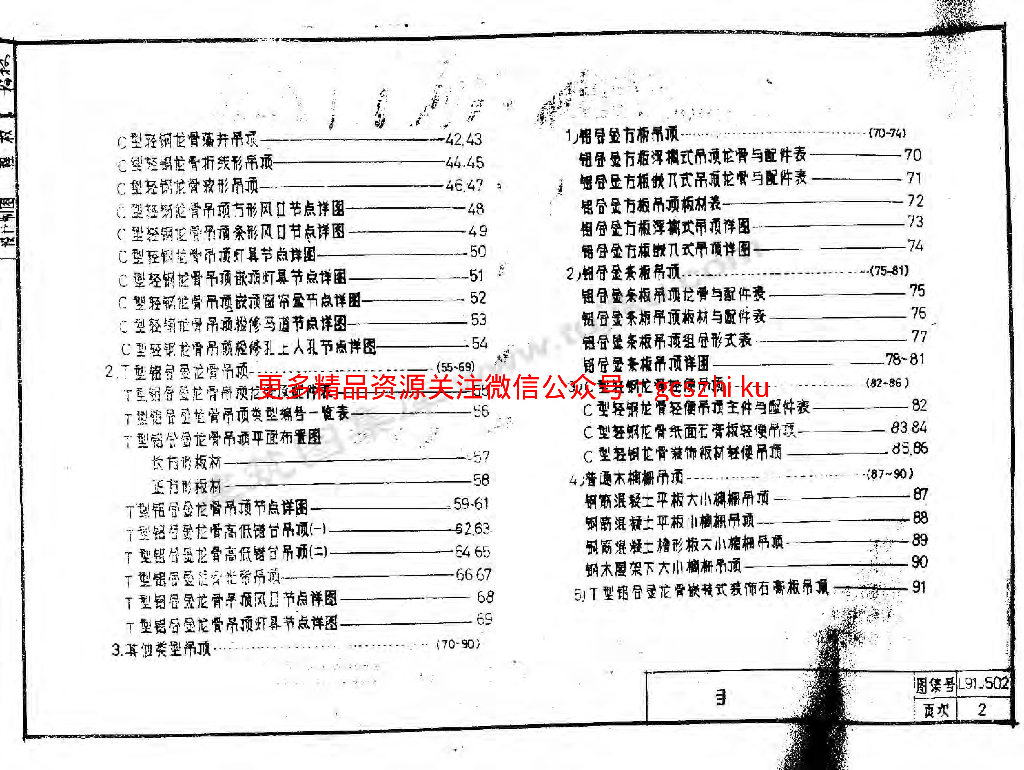 C型轻钢龙骨藻井吊顶 42,43
C型轻钢龙骨折线形吊顶 44.45
C型轻钢龙骨波形吊顶 46.47
C型轻钢龙骨吊顶方形风口节点详图 48
C型轻钢龙骨吊顶条形风口节点详图 49
C型轻钢龙骨吊顶灯具节点详图 50
C型轻钢龙骨吊顶嵌顶灯具节点详图 51
C型轻钢龙骨吊顶嵌顶窗帘盒节点详图 52
C型轻钢龙骨吊顶检修马道节点详图 53
C型轻钢龙骨吊顶检修孔上人孔节点详图 54
2.T型铝合金龙骨吊顶 (55-69)
T型铝合金龙骨吊顶
T型铝合金龙骨吊顶类型编号一览表 56
T型铝合金龙骨吊顶平面布置图
长方形板材 57
正方形板材 58
T型铝合金龙骨吊顶节点详图 59-61
T型铝合金龙骨高低错台吊顶(一) 62,63
T型铝合金龙骨高低错台吊顶(二) 64 65
T型铝合金龙骨 吊顶 66 67
T型铝合金龙骨吊顶风口节点详图 68
T型铝合金龙骨吊顶灯具节点详图 69
3.其他类型吊顶 (70-90)
1)铝合金方板吊顶 (70-74)
铝合金方板浮搁式吊顶龙骨与配件表 70
铝合金方板嵌入式吊顶龙骨与配件表 71
铝合金方板吊顶板材表 72
铝合金方板浮搁式吊顶详图 73
铝合金方板嵌入式吊顶详图 74
2)铝合金条板吊顶 (75-81)
铝合金条板吊顶龙骨与配件表 75
铝合金条板吊顶板材与配件表 76
铝合金条板吊顶组合形式表 77
铝合金条板吊顶详图 78-81
3)C型轻钢龙骨轻便吊顶 (82-86)
C型轻钢龙骨轻便吊顶主件与配件表 82
C型轻钢龙骨纸面石膏板轻便吊顶 83 84
C型轻钢龙骨装饰板材轻便吊顶 85,86
4)普通木搁栅吊顶 (87-90)
钢筋混凝土平板大小搁栅吊顶 87
钢筋混凝土平板小搁栅吊顶 88
钢筋混凝土槽形板大小搁栅吊顶 89
钢木屋架下大小搁栅吊顶 90
5)T型铝合金龙骨嵌装式装饰石膏板吊顶 91
更多精品资源关注微信公众号：gcszhi ku
图集号 L91J502
页次 2